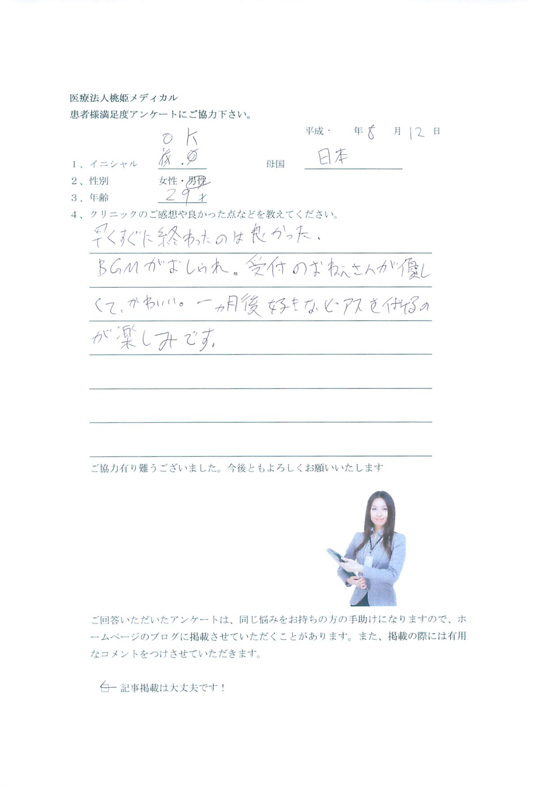 医療法人桃姫メディカル
患者様満足度アンケートにご協力下さい。
平成・ 年 8 月 12 日
O K
1、イニシャル
母国 日本
2、性別 女性・男性
3、年齢 29才
4、クリニックのご感想や良かった点などを教えてください。
すぐに終わったのは良かった。
BGMがおしゃれ。受付のおねえさんが優し
くて、かわいい。一ヵ月後好きなピアスを付けるの
が楽しみです。
ご協力有り難うございました。今後ともよろしくお願いいたします
ご回答いただいたアンケートは、同じ悩みをお持ちの方の手助けになりますので、ホ
ームページのブログに掲載させていただくことがあります。また、掲載の際には有用
なコメントをつけさせていただきます。
記事掲載は大丈夫です！